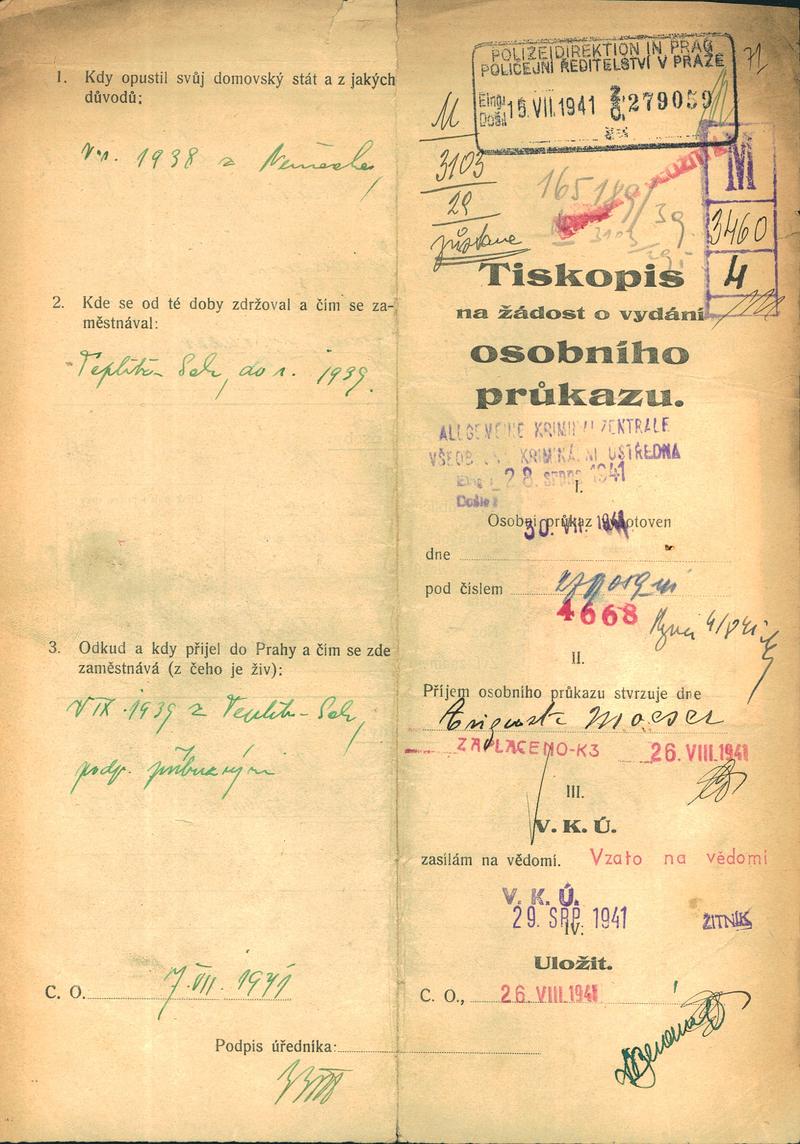 1. Kdy opustil svůj domovský stát a z jakých
důvodů:
V r. 1938 z Německa,
2. Kde se od té doby zdržoval a čím se za-
městnával:
Teplitz- Sch, do r. 1939.
3. Odkud a kdy přijel do Prahy a čím se zde
zaměstnává (z čeho je živ):
V IX. 1939 z Teplitz- Sch,
podp. příbuznými
C. O. 7. VII. 1941
Podpis úředníka:
POLIZEIDIREKTION IN PRAG
POLICEJNÍ ŘEDITELSTVÍ V PRAZE
Eing.
Došl. 15. VII. 1941 279059
71
M
3103
29
zůstane
165189/39
3103
M
3460
4
Tiskopis
na žádost o vydání
osobního
průkazu.
ALLGEMEINE KRIMINALZENTRALE
VŠEOBECNÁ KRIMINÁLNÍ ÚSTŘEDNA
28. SRPNA 1941
Došlo:
I.
Osobní průkaz vyhotoven
30. VII. 1941
dne
pod číslem
4668
II.
Příjem osobního průkazu stvrzuje dne
Augusta Moeser
ZAPLACENO-K3 26. VIII. 1941
III.
V. K. Ú.
zasílám na vědomí. Vzato na vědomí
V. K. Ú.
29. SRP. 1941 ŽITNÍK
IV.
Uložit.
C. O., 26. VIII. 1941